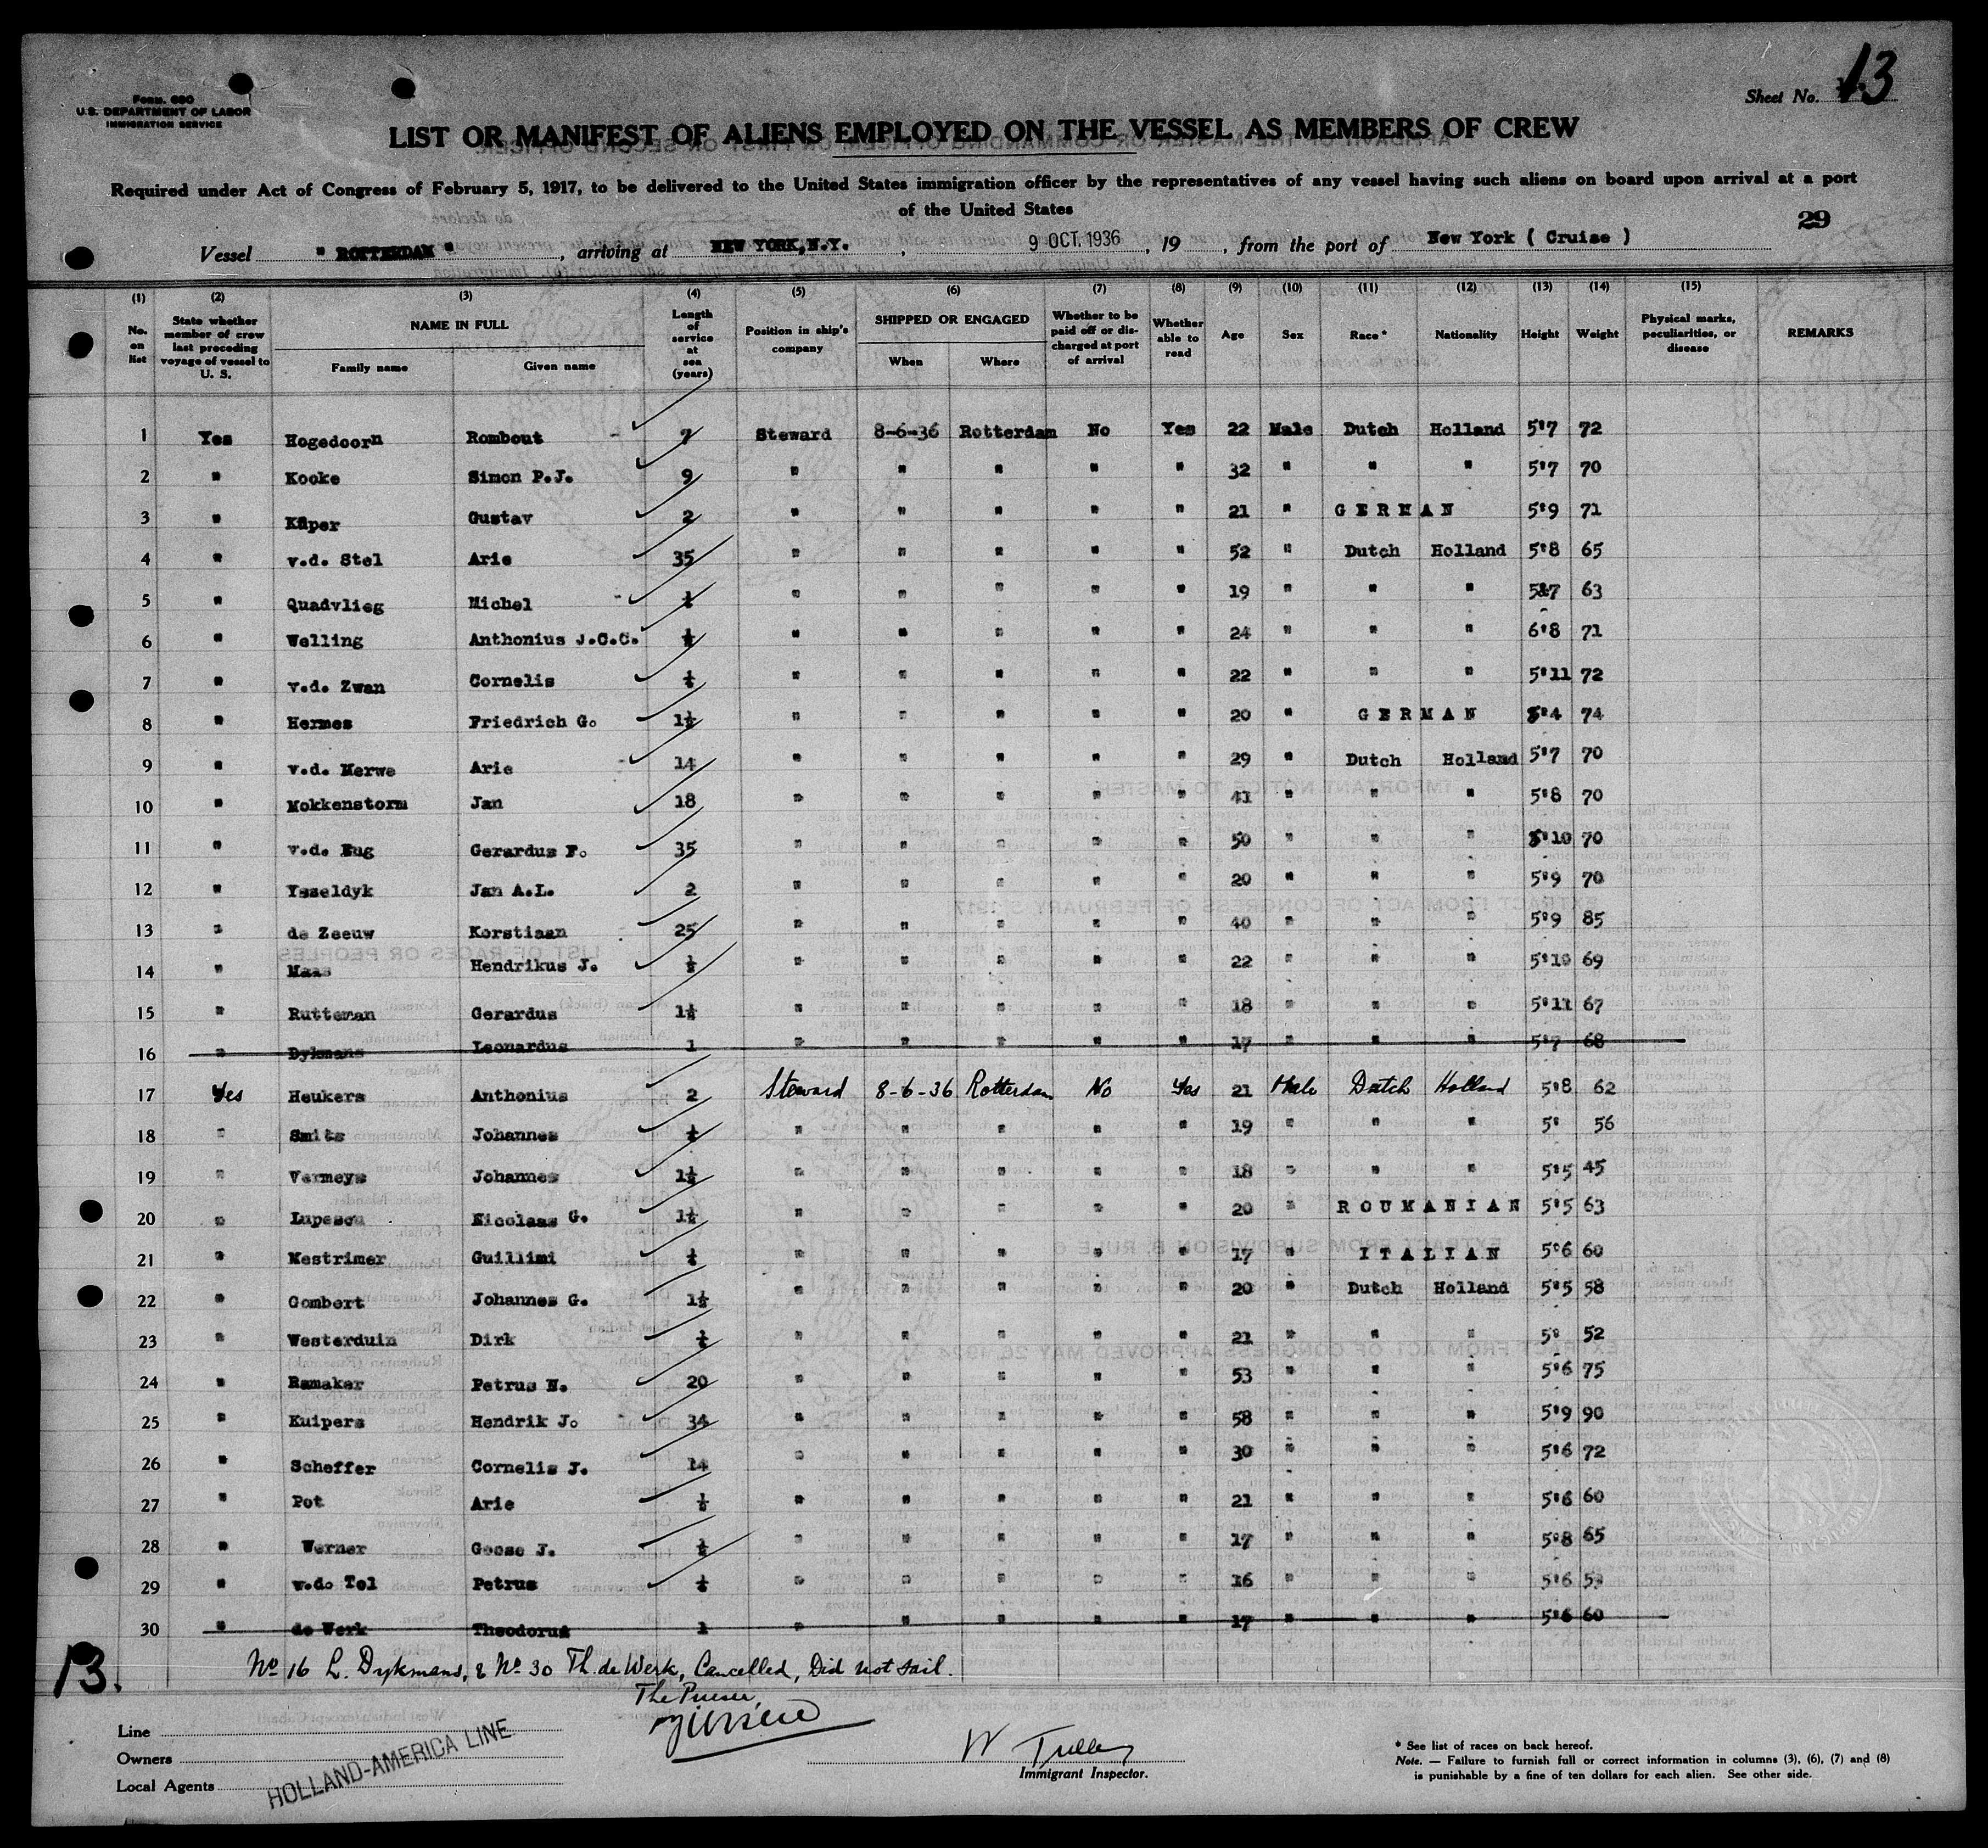 Form. 680
U.S. DEPARTMENT OF LABOR
IMMIGRATION SERVICE
Sheet No. 13
LIST OR MANIFEST OF ALIENS EMPLOYED ON THE VESSEL AS MEMBERS OF CREW
Required under Act of Congress of February 5, 1917, to be delivered to the United States immigration officer by the representatives of any vessel having such aliens on board upon arrival at a port
of the United States
29
Vessel " ROTTERDAM " , arriving at NEW YORK,N.Y. , 9 OCT. 1936 , 19 , from the port of New York ( Cruise )
(1) (2) (3) (4) (5) (6) (7) (8) (9) (10) (11) (12) (13) (14) (15)
No. on list State whether member of crew last preceding voyage of vessel to U. S. NAME IN FULL Family name Given name Length of service at sea (years) Position in ship's company SHIPPED OR ENGAGED When Where Whether to be paid off or discharged at port of arrival Whether able to read Age Sex Race* Nationality Height Weight Physical marks, peculiarities, or disease REMARKS
1 Yes Hogedoorn Rombout 7 Steward 8-6-36 Rotterdam No Yes 22 Male Dutch Holland 5'7 72
2 " Kooke Simon P.J. 9 " " " " " 32 " " " 5'7 70
3 " Küper Gustav 2 " " " " " 21 " GERMAN 5'9 71
4 " v.d. Stel Arie 35 " " " " " 52 " Dutch Holland 5'8 65
5 " Quadvlieg Michel " " " " " 19 " " " 5'7 63
6 " Welling Anthonius J.C.C. " " " " " 24 " " " 6'8 71
7 " v.d. Zwan Cornelis " " " " " 22 " " " 5'11 72
8 " Hermes Friedrich G. 1½ " " " " " 20 " GERMAN 5'4 74
9 " v.d. Merwe Arie 14 " " " " " 29 " Dutch Holland 5'7 70
10 " Mokkenstorm Jan 18 " " " " " 41 " " " 5'8 70
11 " v.d. Gerardus F. 35 " " " " " 50 " " " 5'10 70
12 " Ysseldyk Jan A.L. 2 " " " " " 20 " " " 5'9 70
13 " de Zeeuw Korstiaan 25 " " " " " 40 " " " 5'9 85
14 " Maas Hendrikus J. ½ " " " " " 22 " " " 5'10 69
15 " Rutteman Gerardus 1½ " " " " " 18 " " " 5'11 67
16 " Dykmans Leonardus 1 " " " " " 17 " " " 5'7 68
17 Yes Heukers Anthonius 2 Steward 8-6-36 Rotterdam No Yes 21 Male Dutch Holland 5'8 62
18 " Smits Johannes " " " " " 19 " " " 5' 56
19 " Vermeys Johannes 1½ " " " " " 18 " " " 5'5 45
20 " Lupescu Nicolaas G. 1½ " " " " " 20 " ROUMANIAN 5'5 63
21 " Mestrimer Guillimi " " " " " 17 " ITALIAN 5'6 60
22 " Gombert Johannes G. 1½ " " " " " 20 " Dutch Holland 5'5 58
23 " Westerduin Dirk " " " " " 21 " " " 5' 52
24 " Ramaker Petrus N. 20 " " " " " 53 " " " 5'6 75
25 " Kuipers Hendrik J. 34 " " " " " 58 " " " 5'9 90
26 " Scheffer Cornelis J. 14 " " " " " 30 " " " 5'6 72
27 " Pot Arie ½ " " " " " 21 " " " 5'6 60
28 " Werner Goose J. ½ " " " " " 17 " " " 5'8 65
29 " v.d. Tol Petrus " " " " " 16 " " " 5'6
30 " de Werk Theodorus 1 " " " " " 17 " " " 5'6 60
13.
No 16 L. Dykmans, & No 30 Th. de Werk, Cancelled, Did not sail.
The Purser,
Line
Owners
Local Agents
HOLLAND-AMERICA LINE
W
Immigrant Inspector.
* See list of races on back hereof.
Note. — Failure to furnish full or correct information in columns (3), (6), (7) and (8)
is punishable by a fine of ten dollars for each alien. See other side.